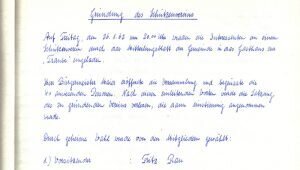 Gründung des Schützenvereins
Auf Freitag, den 26. um 20.00 Uhr wurden die Interessenten an einem
Schützenverein durch das Mitteilungsblatt der Gemeinde in das Gasthaus zur
Traube eingeladen.
Herr Bürgermeister eröffnete die Versammlung und begrüsste die
40 anwesenden Personen. Nach einem einleitenden Worten wurde die Satzung
des zu gründenden Vereins verlesen, die dann einstimmig angenommen
wurde.
Durch geheime Wahl wurde von den Mitgliedern gewählt:
1.) Vorsitzender : Fritz